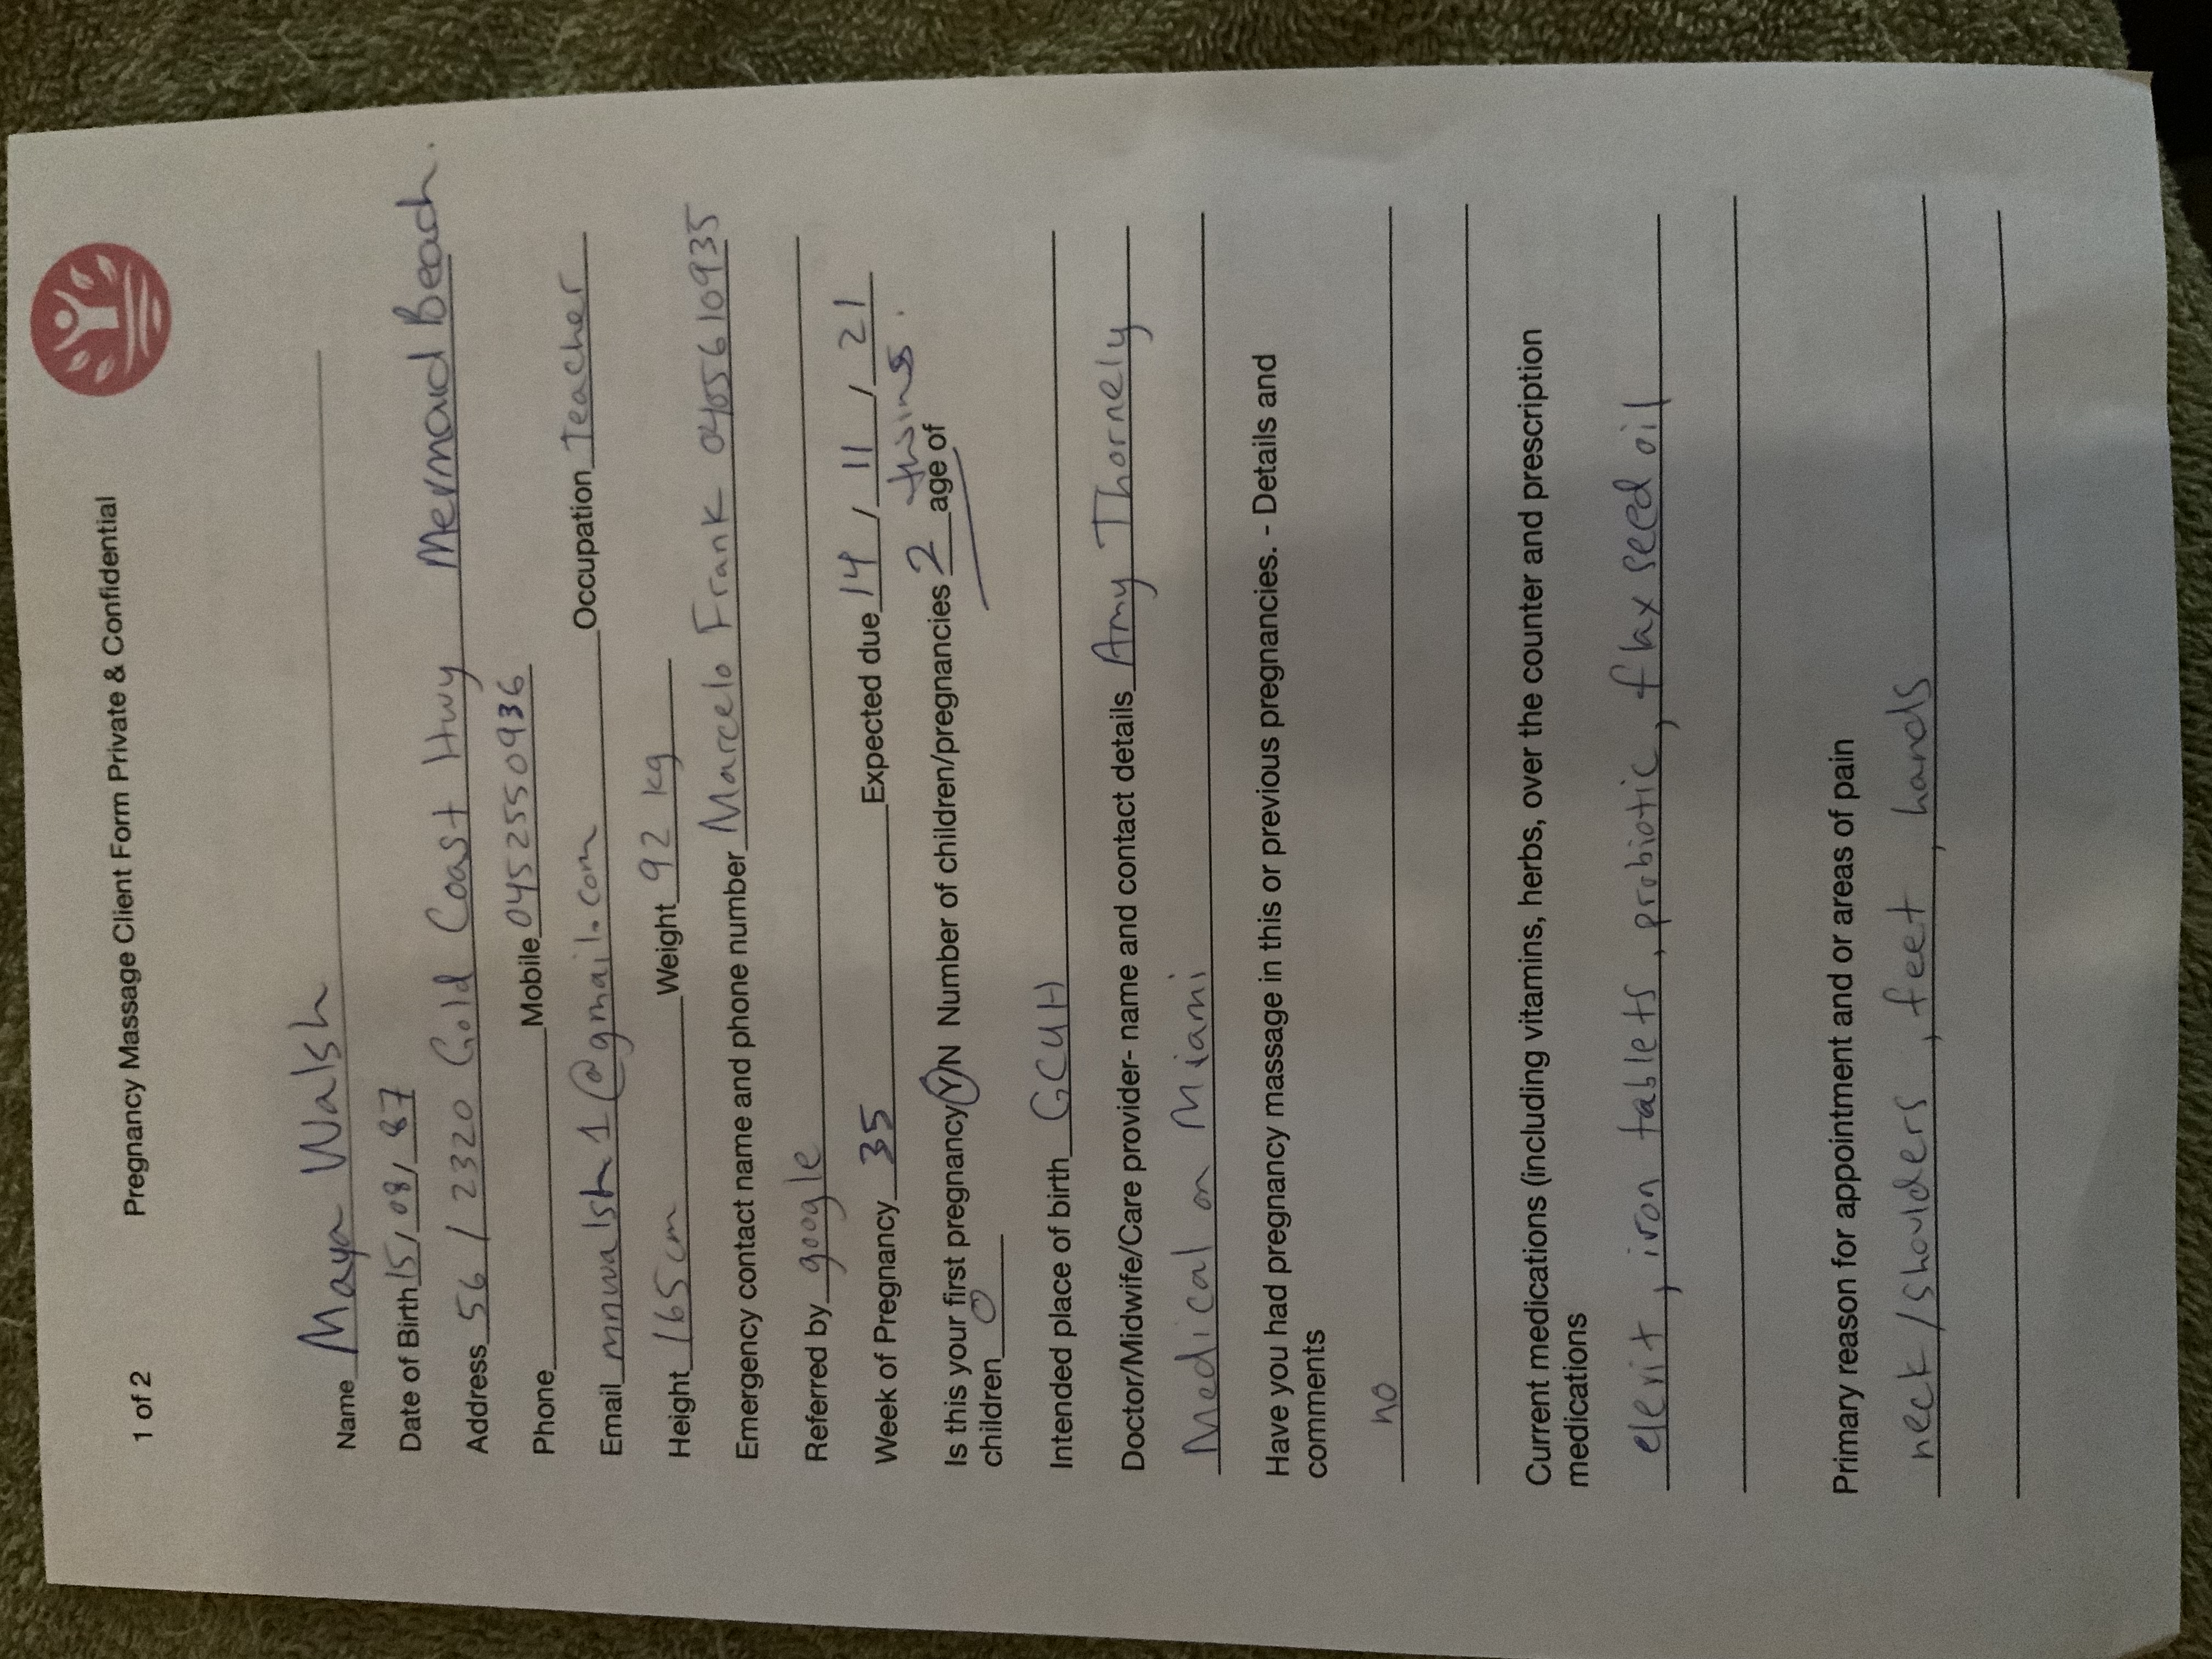 1 of 2 Pregnancy Massage Client Form Private & Confidential
Name Maya Walsh
Date of Birth 15/08/87
Address 56 / 2320 Gold Coast Hwy Mermaid Beach.
Phone Mobile 0452550936
Email mmwalsh1@gmail.com Occupation Teacher
Height 165cm Weight 92 kg
Emergency contact name and phone number Marcelo Frank 0405610935
Referred by google
Week of Pregnancy 35 Expected due 14 / 11 / 21
Is this your first pregnancy Y/N Number of children/pregnancies 2 age of twins.
children 0
Intended place of birth GCUH
Doctor/Midwife/Care provider- name and contact details Amy Thornely
Medical on Miami
Have you had pregnancy massage in this or previous pregnancies. - Details and
comments
no
Current medications (including vitamins, herbs, over the counter and prescription
medications
elevit, iron tablets, probiotic, flax seed oil
Primary reason for appointment and or areas of pain
neck/shoulders, feet, hands